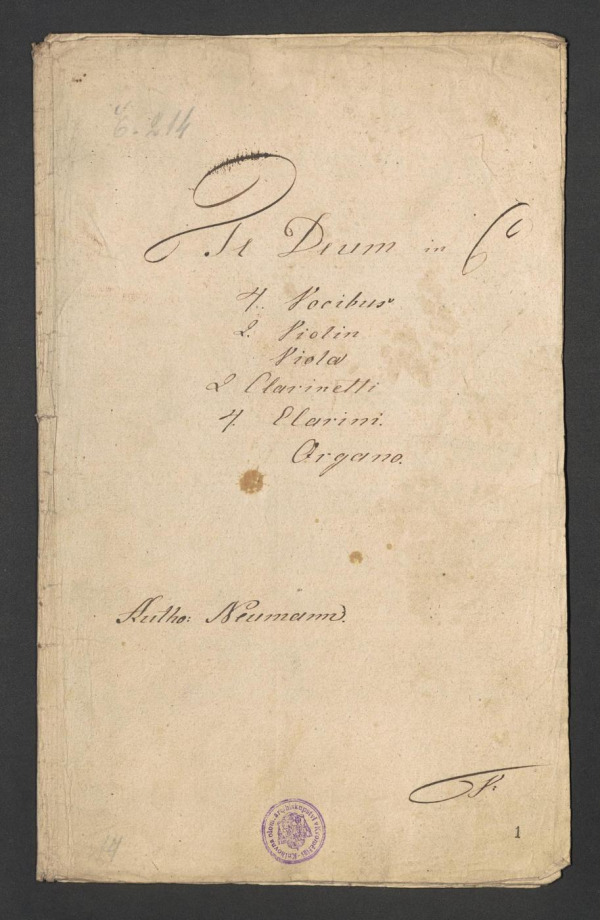 Č. 214
Te Deum in C
4. Vocibus
2. Violin
Viola
2 Clarinetti
4. Clarini.
Organo.
Autho: Neumann.
1
14